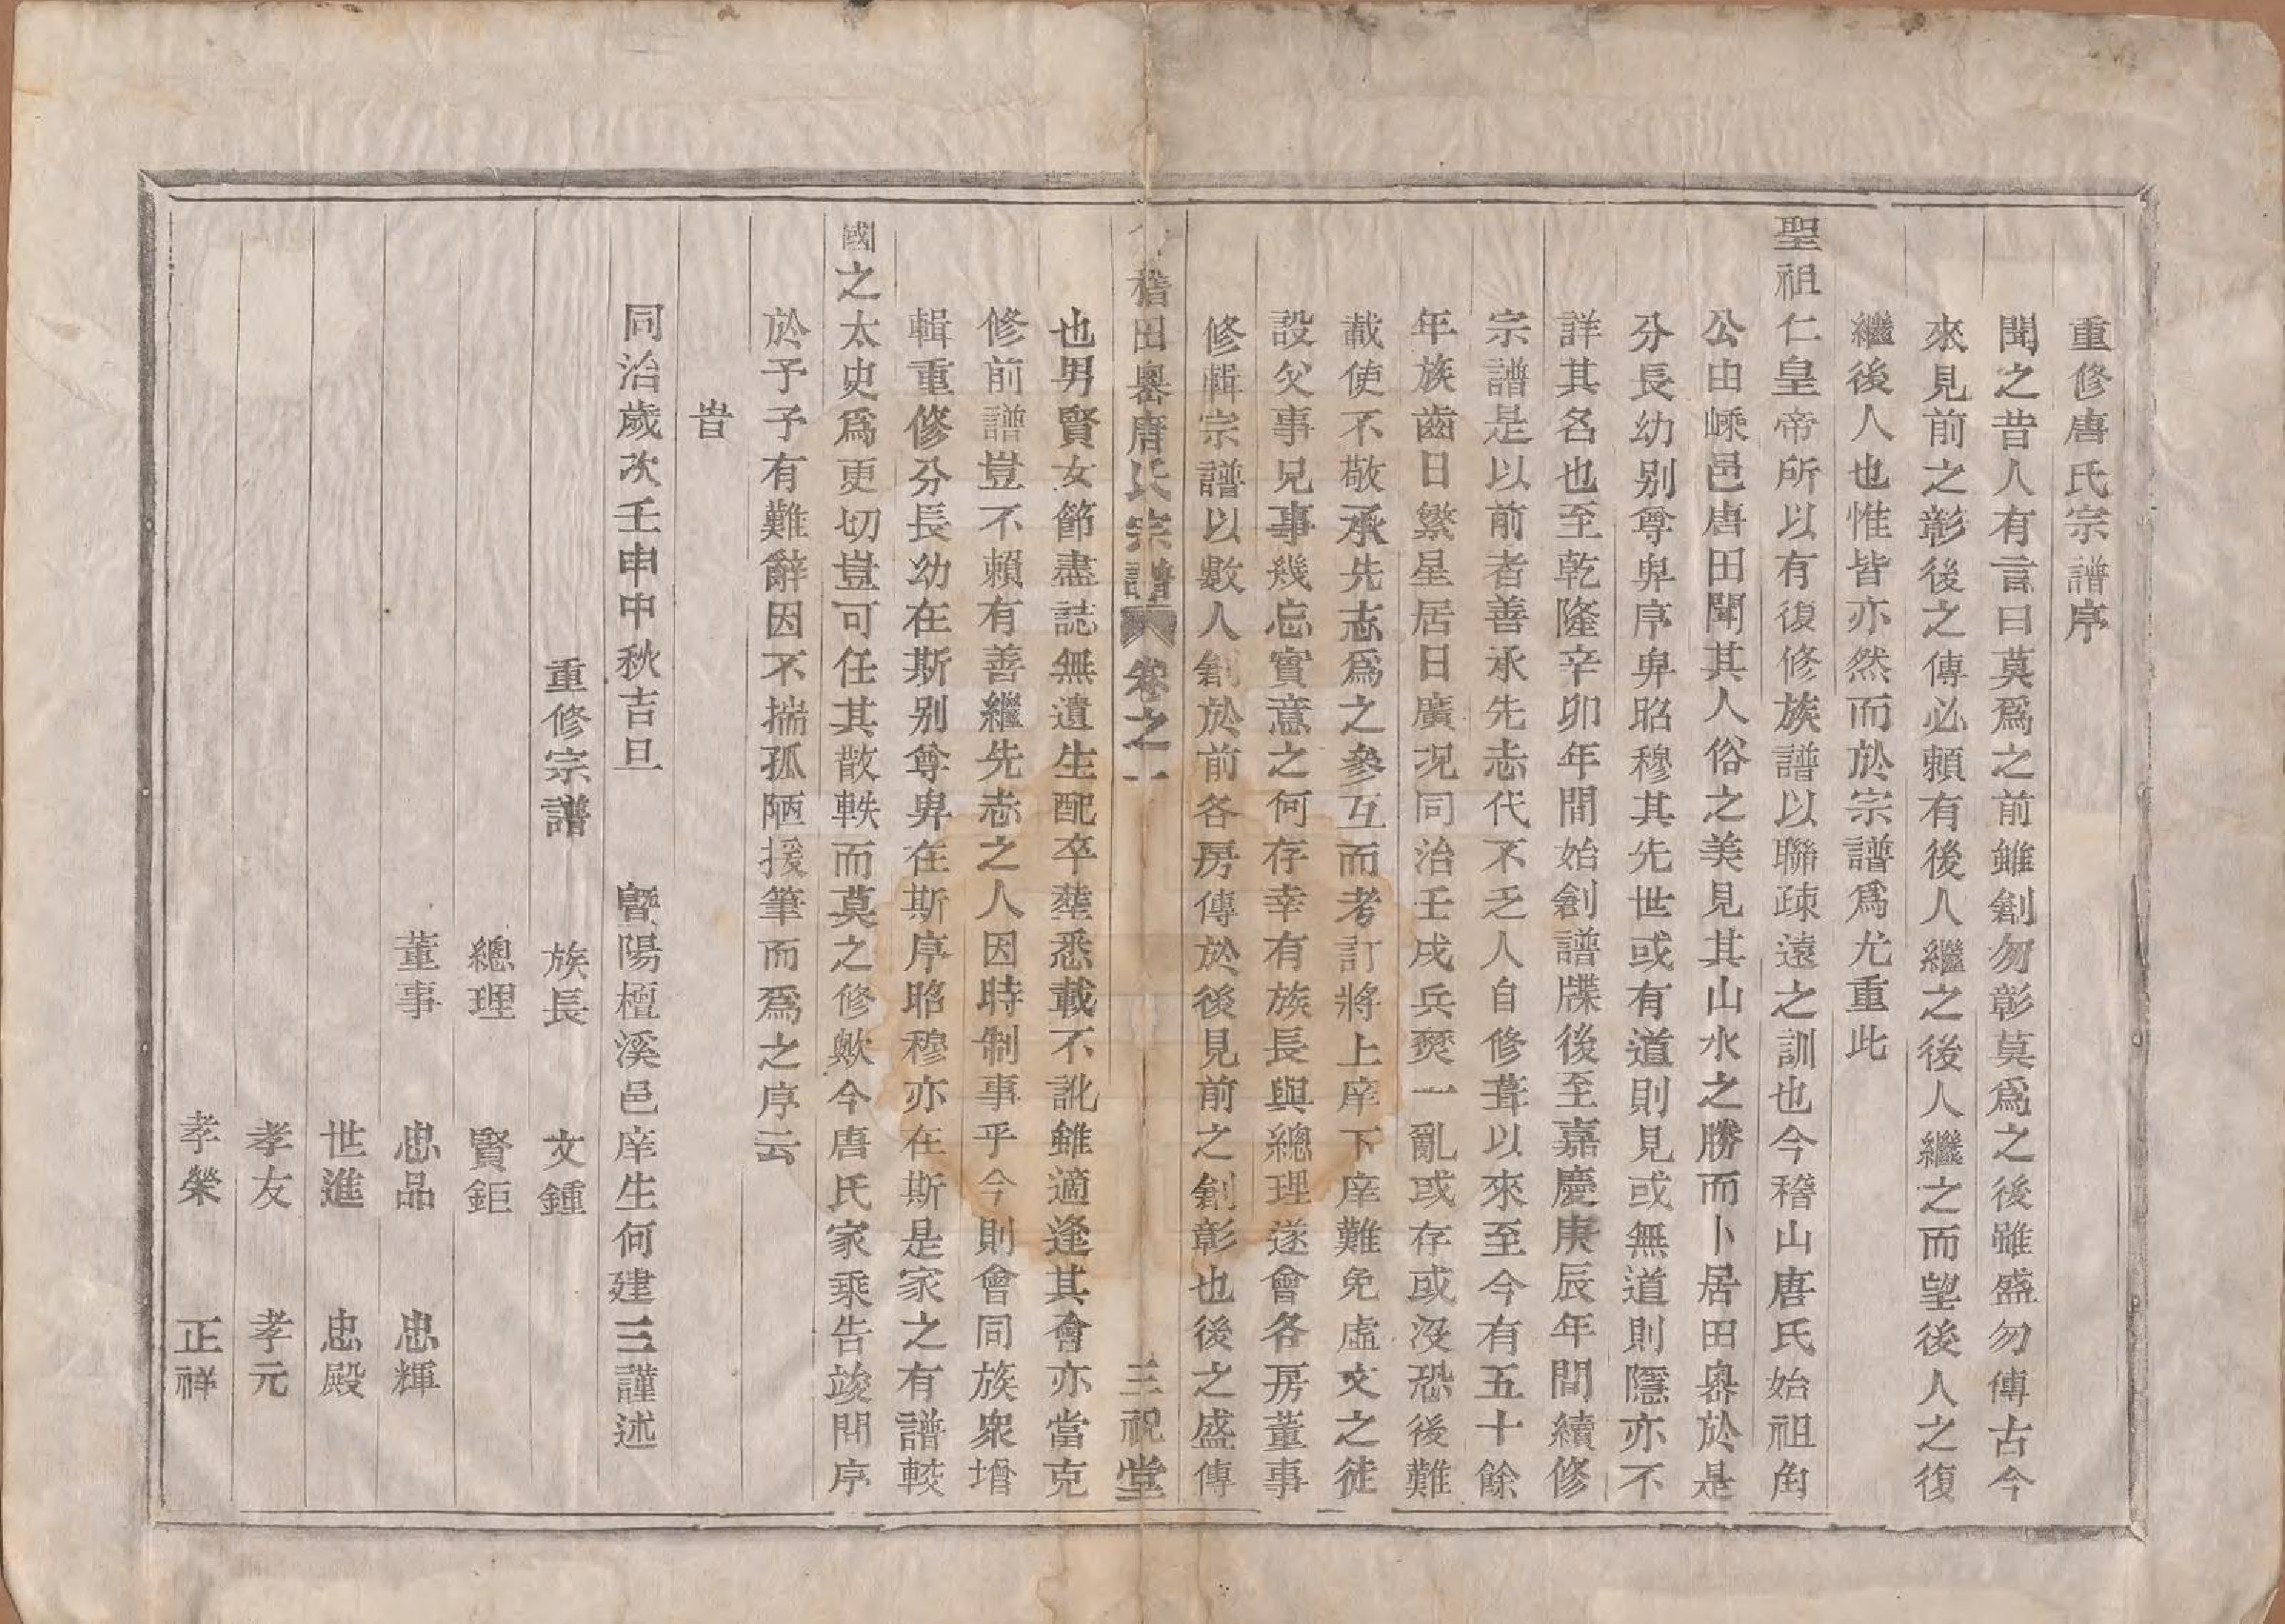 重修唐氏宗譜序
聞之昔人有言曰莫爲之前雖創勿彰莫爲之後雖盛勿傳古今
來見前之彰後之傳必賴有後人繼之後人繼之而望後人之復
繼後人也惟皆亦然而於宗譜爲尤重此
聖祖仁皇帝所以有復修族譜以聯疎遠之訓也今稽山唐氏始祖角
公由嵊邑唐田聞其人俗之美見其山水之勝而卜居田畧於是
分長幼别尊卑序昭穆其先世或有道則見或無道則隱亦不
詳其名也至乾隆辛卯年間始創譜牒後至嘉慶庚辰年間續修
宗譜是以前者善承先志代不乏人自修葺以來至今有五十餘
年族齒日繁星居日廣况同治壬戌兵燹一亂或存或沒恐後難
載使不敬承先志爲之參互而考訂將上庠下庠難免虛文之徒
設父事兄事幾忘實意之何存幸有族長與總理遂會各房董事
修輯宗譜以數人創於前各房傳於後見前之創彰也後之盛傳
稽田畧唐氏宗譜 卷之一 三祝堂
也男賢女節盡誌無遺生配卒塟悉載不訛雖適逢其會亦當克
修前譜豈不賴有善繼先志之人因時制事乎今則會同族衆增
輯重修分長幼在斯别尊卑在斯序昭穆亦在斯是家之有譜較
國之太史爲更切豈可任其散軼而莫之修歟今唐氏家乘告竣問序
於予予有難辭因不揣孤陋援筆而爲之序云
旹
同治歲次壬申中秋吉旦 曁陽檀溪邑庠生何建三謹述
重修宗譜 族長 文鍾
總理 賢鉅
董事 忠品 忠輝
世進 忠殿
孝友 孝元
孝榮 正祥